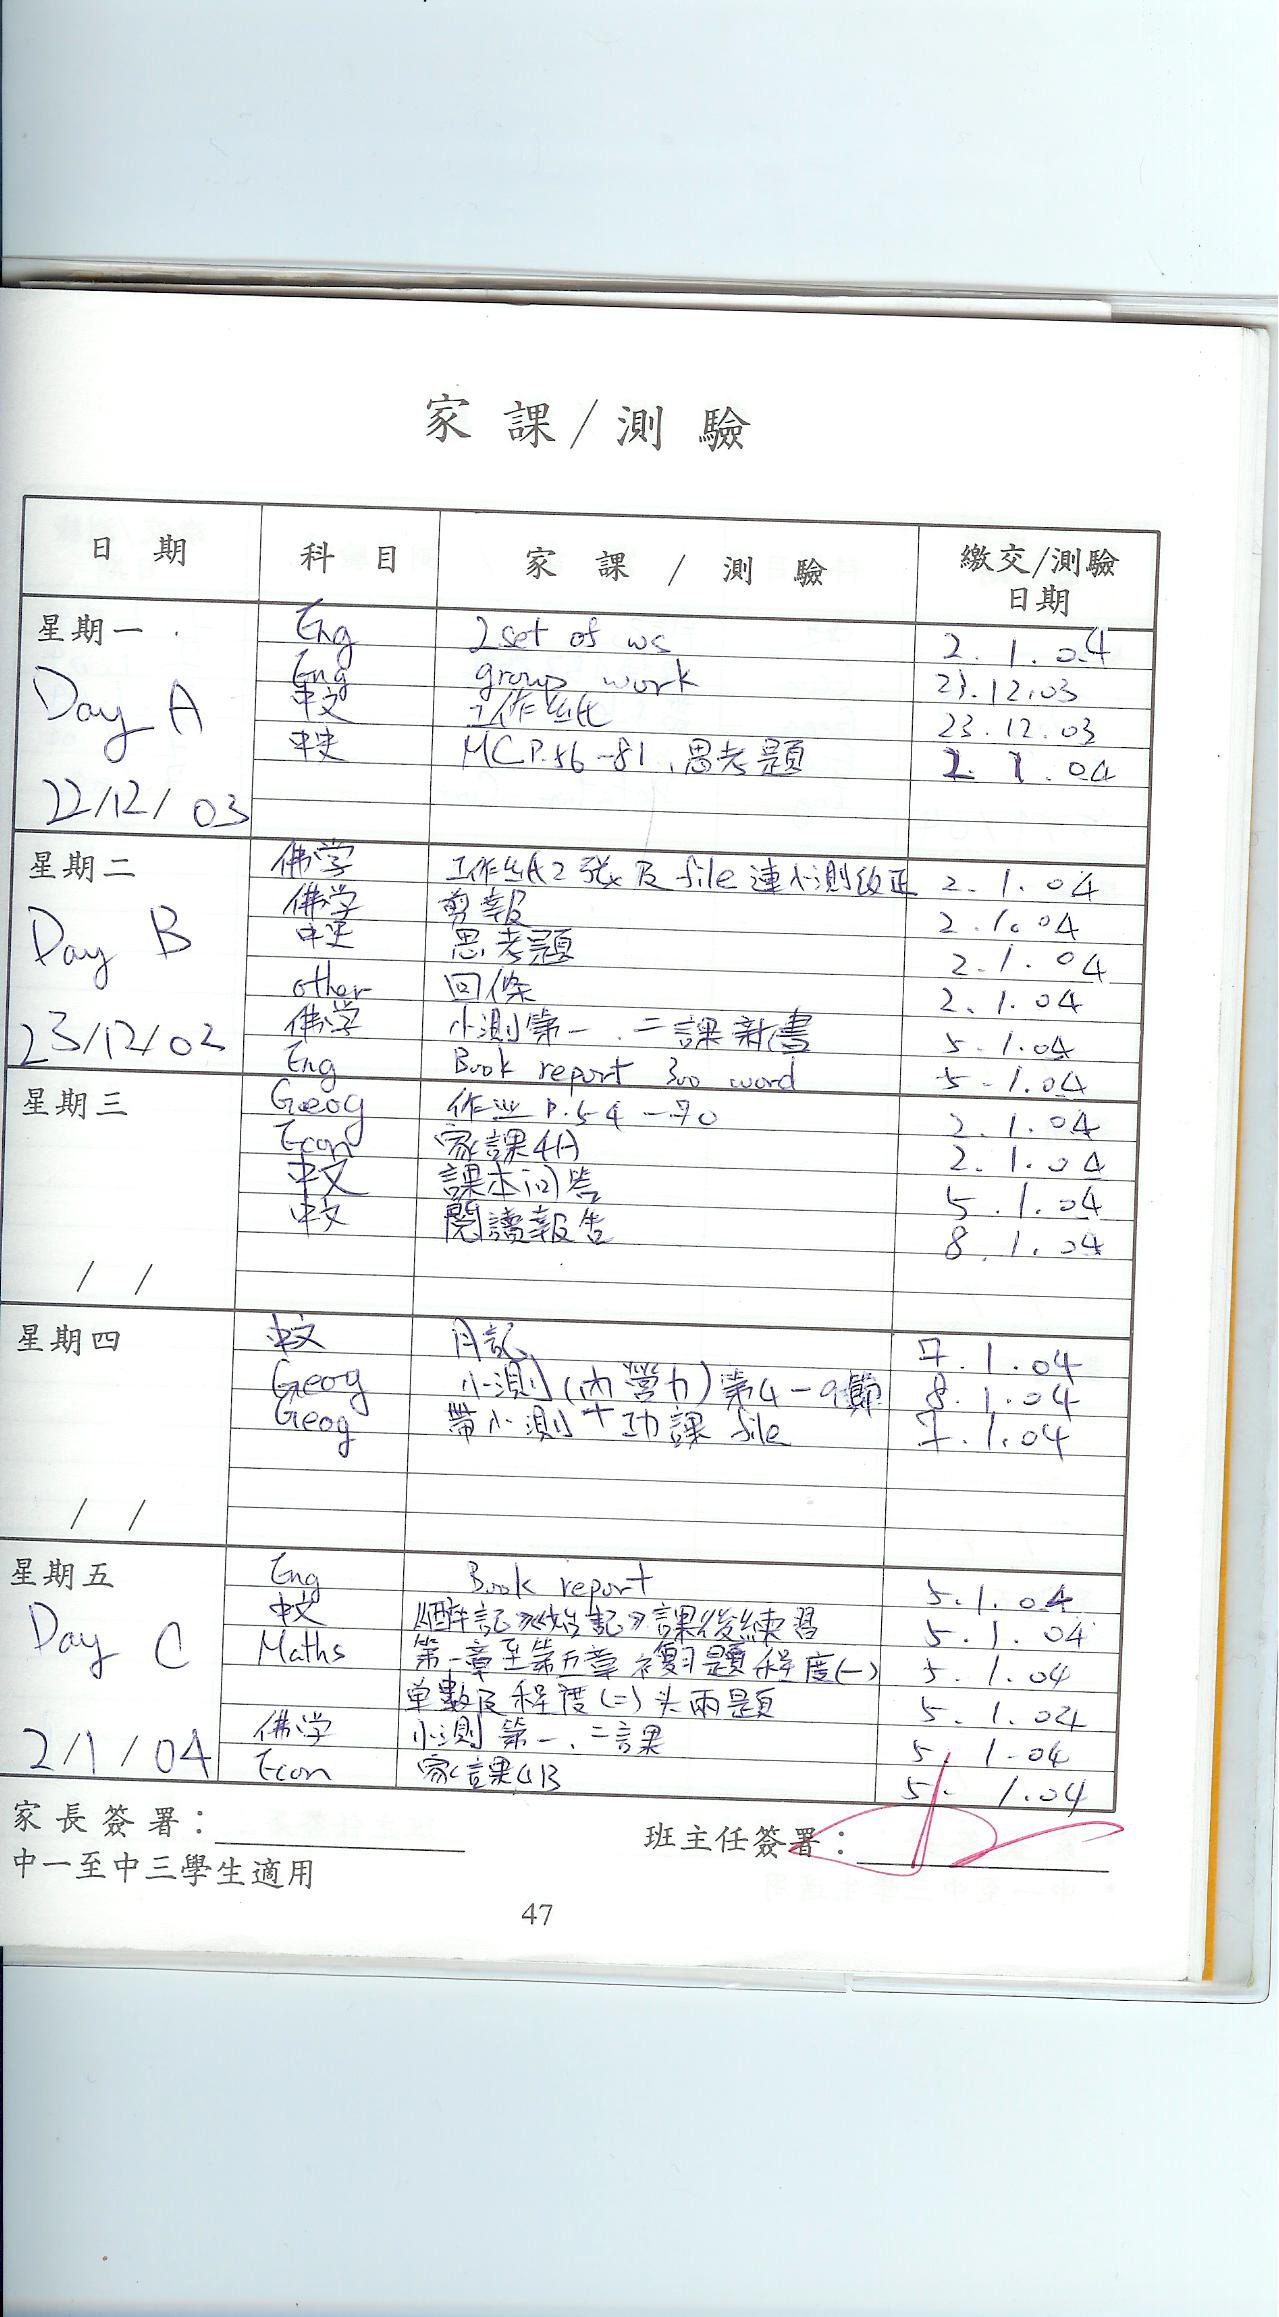 家課/測驗
日期 科目 家課/測驗 繳交/測驗
日期
星期一 Eng 2 set of ws 2.1.04
Day A Eng group work 23.12.03
中文 工作紙 23.12.03
中史 MC P.56-81、思考題 2.1.04
22/12/03
星期二 佛学 工作紙2張及file連小測改正 2.1.04
Day B 佛学 剪報 2.1.04
中史 思考題 2.1.04
other 回條 2.1.04
23/12/03 佛学 小測第一、二課新書 5.1.04
Eng Book report 300 word 5.1.04
星期三 Geog 作业 P.54-70 2.1.04
Econ 家課4A 2.1.04
中文 課本问答 5.1.04
中文 閱讀報告 8.1.04
/ /
星期四 中文 月記 7.1.04
Geog 小測(內營力)第4-9節 8.1.04
Geog 帶小測+功課file 7.1.04
/ /
星期五 Eng Book report 5.1.04
Day C 中文 課後練習 5.1.04
Maths 第一章至第五章複习題程度(一) 5.1.04
单數及程度(二)头兩題 5.1.04
佛学 小測第一、二課 5.1.04
2/1/04 Econ 家課4B 5.1.04
家長簽署: 班主任簽署:
中一至中三學生適用
47